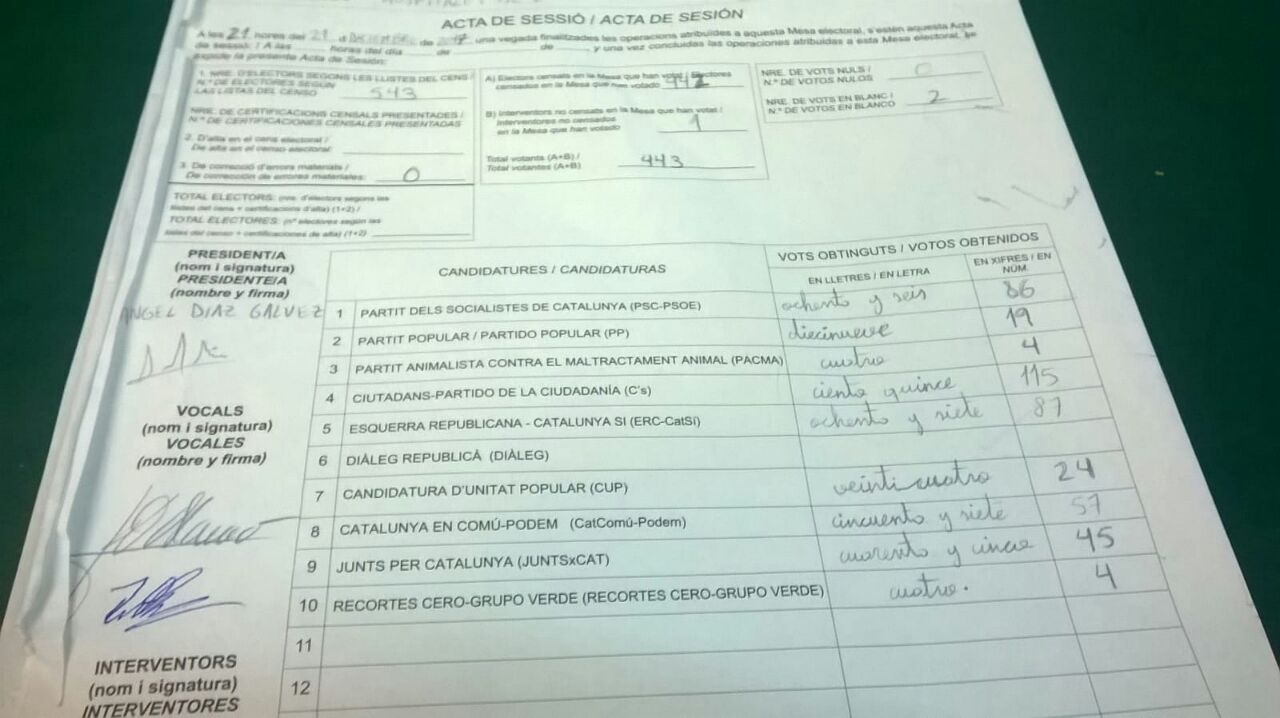 ACTA DE SESSIÓ / ACTA DE SESIÓN
A les 21 hores del 21 d DICIEMBRE de 2017 una vegada finalitzades les operacions atribuïdes a aquesta Mesa electoral, s'estén aquesta Acta
de sessió. / A las horas del día de de , y una vez concluidas las operaciones atribuidas a esta Mesa electoral, se
expide la presente Acta de Sesión:
1. NRE. D'ELECTORS SEGONS LES LLISTES DEL CENS /
N.º DE ELECTORES SEGÚN
LAS LISTAS DEL CENSO 543
NRE. DE CERTIFICACIONS CENSALS PRESENTADES /
N.º DE CERTIFICACIONES CENSALES PRESENTADAS
2. D'alta en el cens electoral /
De alta en el censo electoral:
3. De correcció d'errors materials /
De corrección de errores materiales: 0
TOTAL ELECTORS: (nre. d'electors segons les
llistes del cens + certificacions d'alta) (1+2) /
TOTAL ELECTORES: (nº electores según las
listas del censo + certificaciones de alta) (1+2)
A) Electors censats en la Mesa que han votat / Electores
censados en la Mesa que han votado 442
B) Interventors no censats en la Mesa que han votat /
Interventores no censados
en la Mesa que han votado 1
Total votants (A+B) /
Total votantes (A+B) 443
NRE. DE VOTS NULS /
N.º DE VOTOS NULOS 0
NRE. DE VOTS EN BLANC /
N.º DE VOTOS EN BLANCO 2
PRESIDENT/A
(nom i signatura)
PRESIDENTE/A
(nombre y firma)
ANGEL DIAZ GALVEZ
VOCALS
(nom i signatura)
VOCALES
(nombre y firma)
INTERVENTORS
(nom i signatura)
INTERVENTORES
CANDIDATURES / CANDIDATURAS
VOTS OBTINGUTS / VOTOS OBTENIDOS
EN LLETRES / EN LETRA
EN XIFRES / EN
NÚM.
1 PARTIT DELS SOCIALISTES DE CATALUNYA (PSC-PSOE) ochenta y seis 86
2 PARTIT POPULAR / PARTIDO POPULAR (PP) diecinueve 19
3 PARTIT ANIMALISTA CONTRA EL MALTRACTAMENT ANIMAL (PACMA) cuatro 4
4 CIUTADANS-PARTIDO DE LA CIUDADANÍA (C's) ciento quince 115
5 ESQUERRA REPUBLICANA - CATALUNYA SI (ERC-CatSí) ochenta y siete 87
6 DIÀLEG REPUBLICÀ (DIÀLEG)
7 CANDIDATURA D'UNITAT POPULAR (CUP) veinticuatro 24
8 CATALUNYA EN COMÚ-PODEM (CatComú-Podem) cincuenta y siete 57
9 JUNTS PER CATALUNYA (JUNTSxCAT) cuarenta y cinco 45
10 RECORTES CERO-GRUPO VERDE (RECORTES CERO-GRUPO VERDE) cuatro. 4
11
12